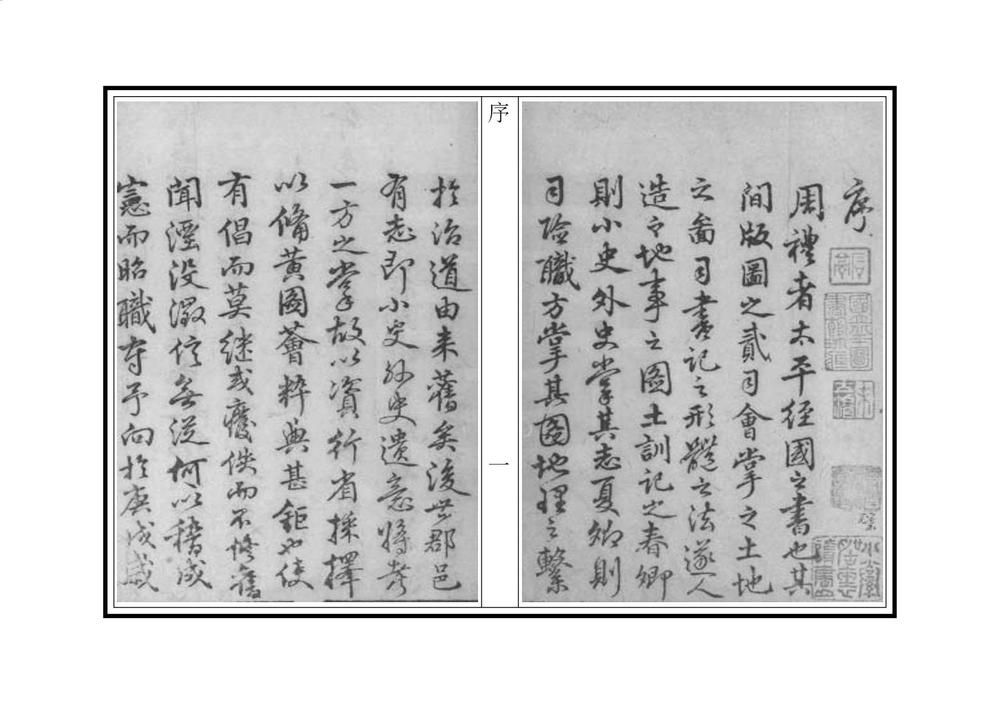 序
周禮者太平經國之書也其
間版圖之貳司會掌之土地
之圖司書記之形體之法遂人
造之地事之圖土訓記之春卿
則小史外史掌其志夏卿則
司險職方掌其圖地理之繫
序
一
於治道由来舊矣後世郡邑
有志即小史外史遺意將考
一方之掌故以資行省採擇
以備黃圖薈粹典甚鉅也使
有倡而莫继或廢佚而不修舊
聞湮没徵信無從何以稽成
憲而昭職守予向於庚戌歲